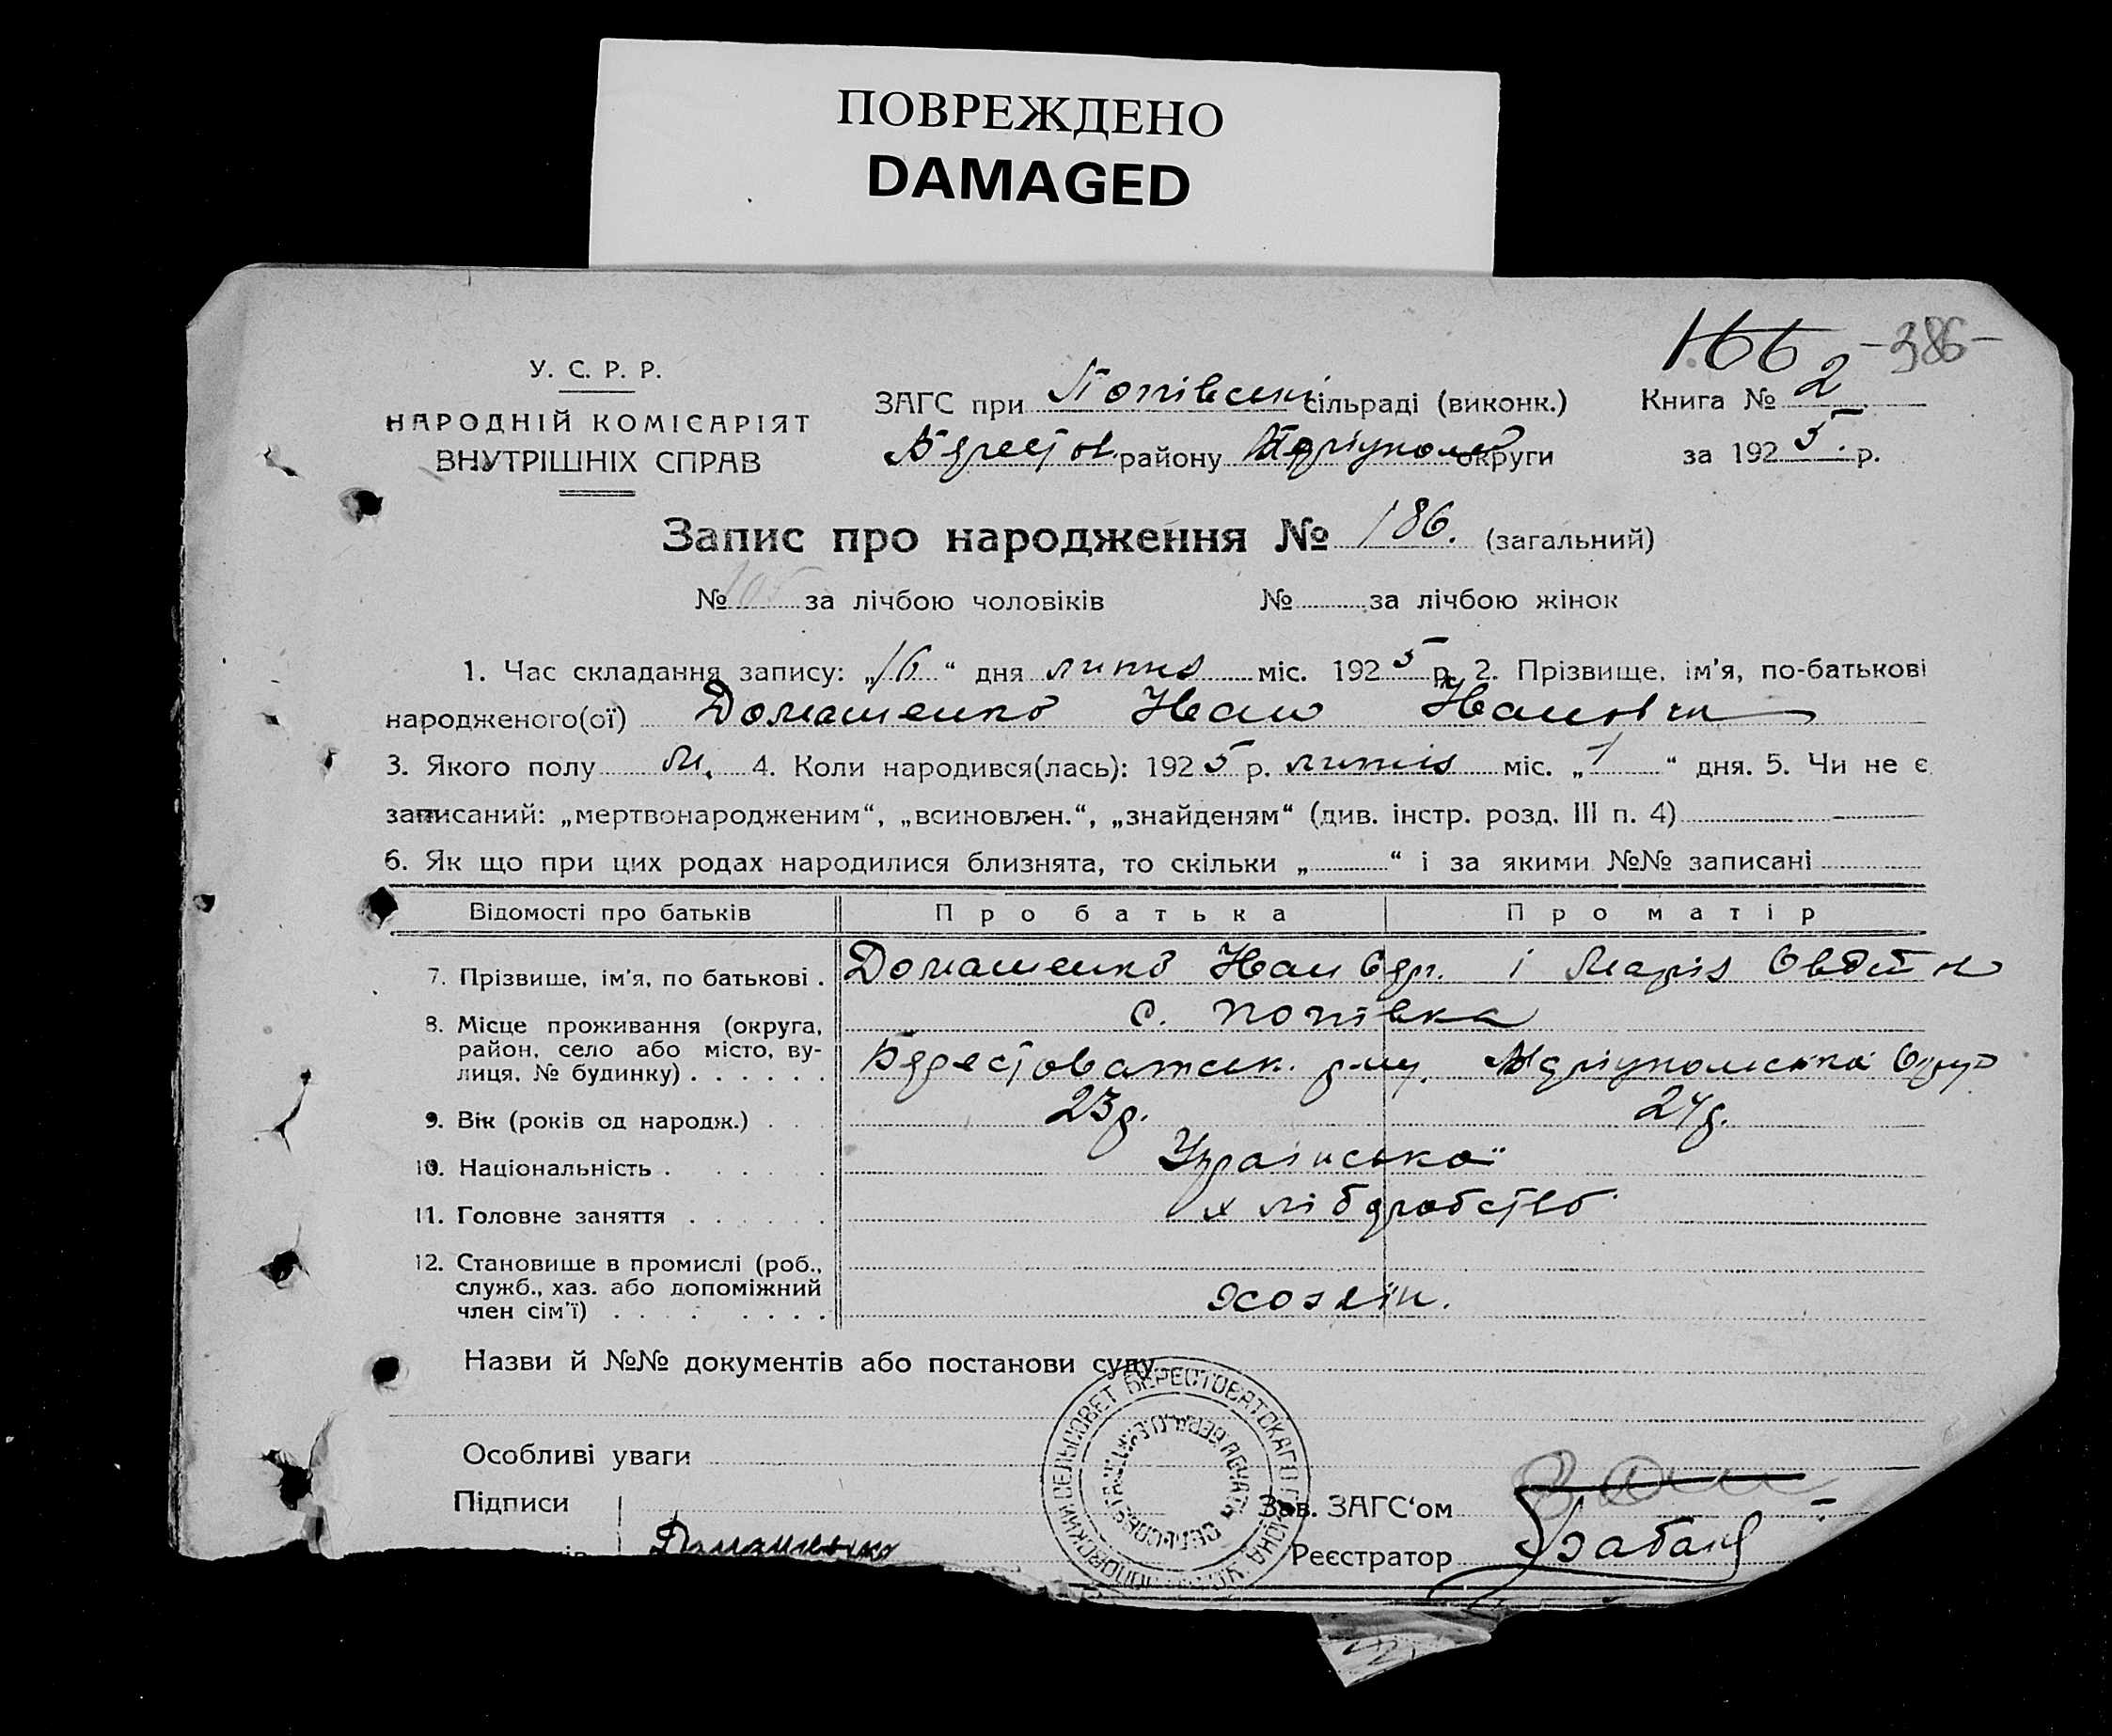 ПОВРЕЖДЕНО
DAMAGED
166 -386-
У. С. Р. Р.
НАРОДНІЙ КОМІСАРІЯТ
ВНУТРІШНІХ СПРАВ
ЗАГС при Попівські сільраді (виконк.) Книга № 2
Берестов. району Маріуполь округи за 1925 р.
Запис про народження № 186. (загальний)
№ 105 за лічбою чоловіків № за лічбою жінок
1. Час складання запису: „16“ дня липня міс. 1925 р. 2. Прізвище, ім'я, по-батькові
народженого(ої) Домашенко Иван Иванович
3. Якого полу м. 4. Коли народився(лась): 1925 р. липня міс. „1“ дня. 5. Чи не є
записаний: „мертвонародженим“, „всиновлен.“, „знайденям“ (див. інстр. розд. III п. 4)
6. Як що при цих родах народилися близнята, то скільки „ “ і за якими №№ записані
Відомості про батьків Про батька Про матір
7. Прізвище, ім'я, по батькові . Домашенко Иван і Марія
8. Місце проживання (округа, район, село або місто, вулиця, № будинку) . . . . . . с. Попівка
Берестоватськ. р-ну, Маріупольська
9. Вік (років од народж.) . . . 23 р. 24 р.
10. Національність . . . . Українська
11. Головне заняття . . . . . . хлібдробство
12. Становище в промислі (роб., служб., хаз. або допоміжний член сім'ї) . . . . . . . . хозяїн.
Назви й №№ документів або постанови суду
Особливі уваги
Підписи Зав. ЗАГС‘ом
Домашенко Реєстратор
СЕЛЬСОВЕТ БЕРЕСТОВАТСКАГО РАЙОНА